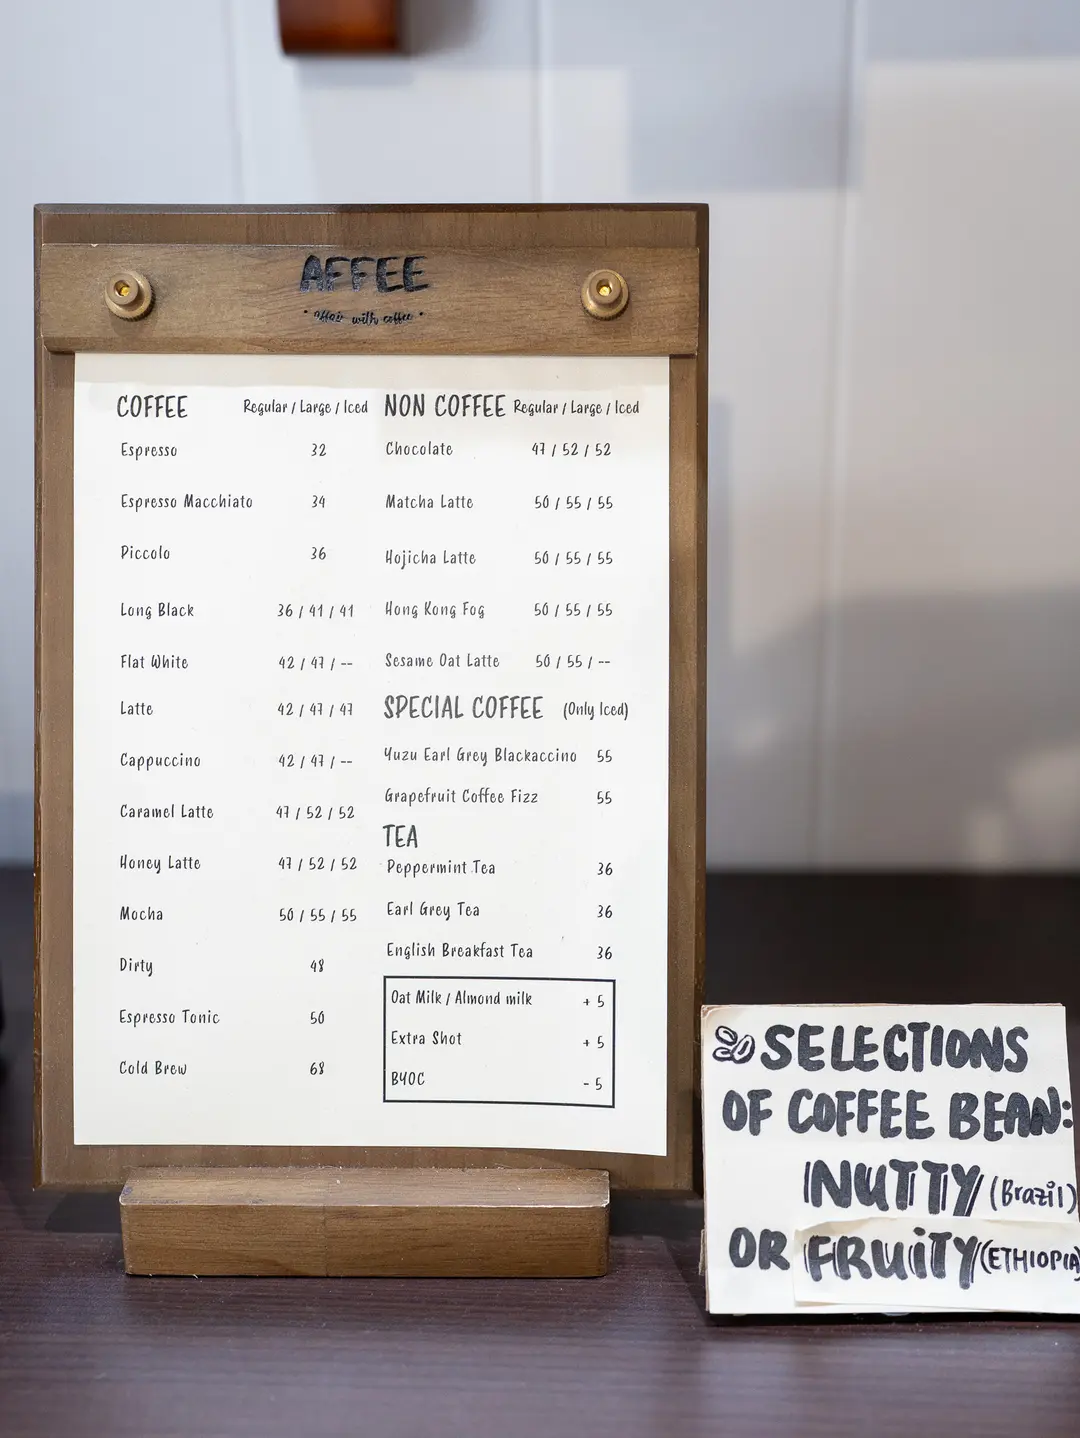 AFFEE
affair with coffee
COFFEE Regular / Large / Iced
Espresso 32
Espresso Macchiato 34
Piccolo 36
Long Black 36 / 41 / 41
Flat White 42 / 47 / --
Latte 42 / 47 / 47
Cappuccino 42 / 47 / --
Caramel Latte 47 / 52 / 52
Honey Latte 47 / 52 / 52
Mocha 50 / 55 / 55
Dirty 48
Espresso Tonic 50
Cold Brew 68
NON COFFEE Regular / Large / Iced
Chocolate 47 / 52 / 52
Matcha Latte 50 / 55 / 55
Hojicha Latte 50 / 55 / 55
Hong Kong Fog 50 / 55 / 55
Sesame Oat Latte 50 / 55 / --
SPECIAL COFFEE (Only Iced)
Yuzu Earl Grey Blackaccino 55
Grapefruit Coffee Fizz 55
TEA
Peppermint Tea 36
Earl Grey Tea 36
English Breakfast Tea 36
Oat Milk / Almond milk + 5
Extra Shot + 5
BYOC - 5
SELECTIONS
OF COFFEE BEAN:
NUTTY (Brazil)
OR FRUiTY (ETHIOPIA)